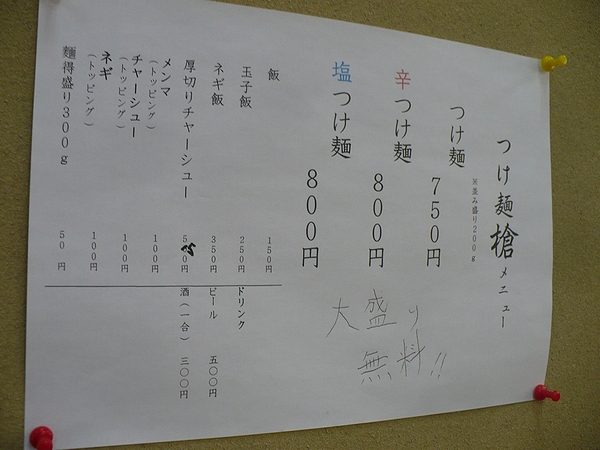 つけ麺 槍 メニュー
※並み盛り200g
つけ麺 750円
辛つけ麺 800円
塩つけ麺 800円
大盛り
無料!!
飯 150円
玉子飯 250円
ネギ飯 350円
厚切りチャーシュー
メンマ
(トッピング) 100円
チャーシュー
(トッピング) 100円
ネギ
(トッピング) 100円
麺得盛り300g 50円
ドリンク
ビール 五〇〇円
酒(一合) 三〇〇円